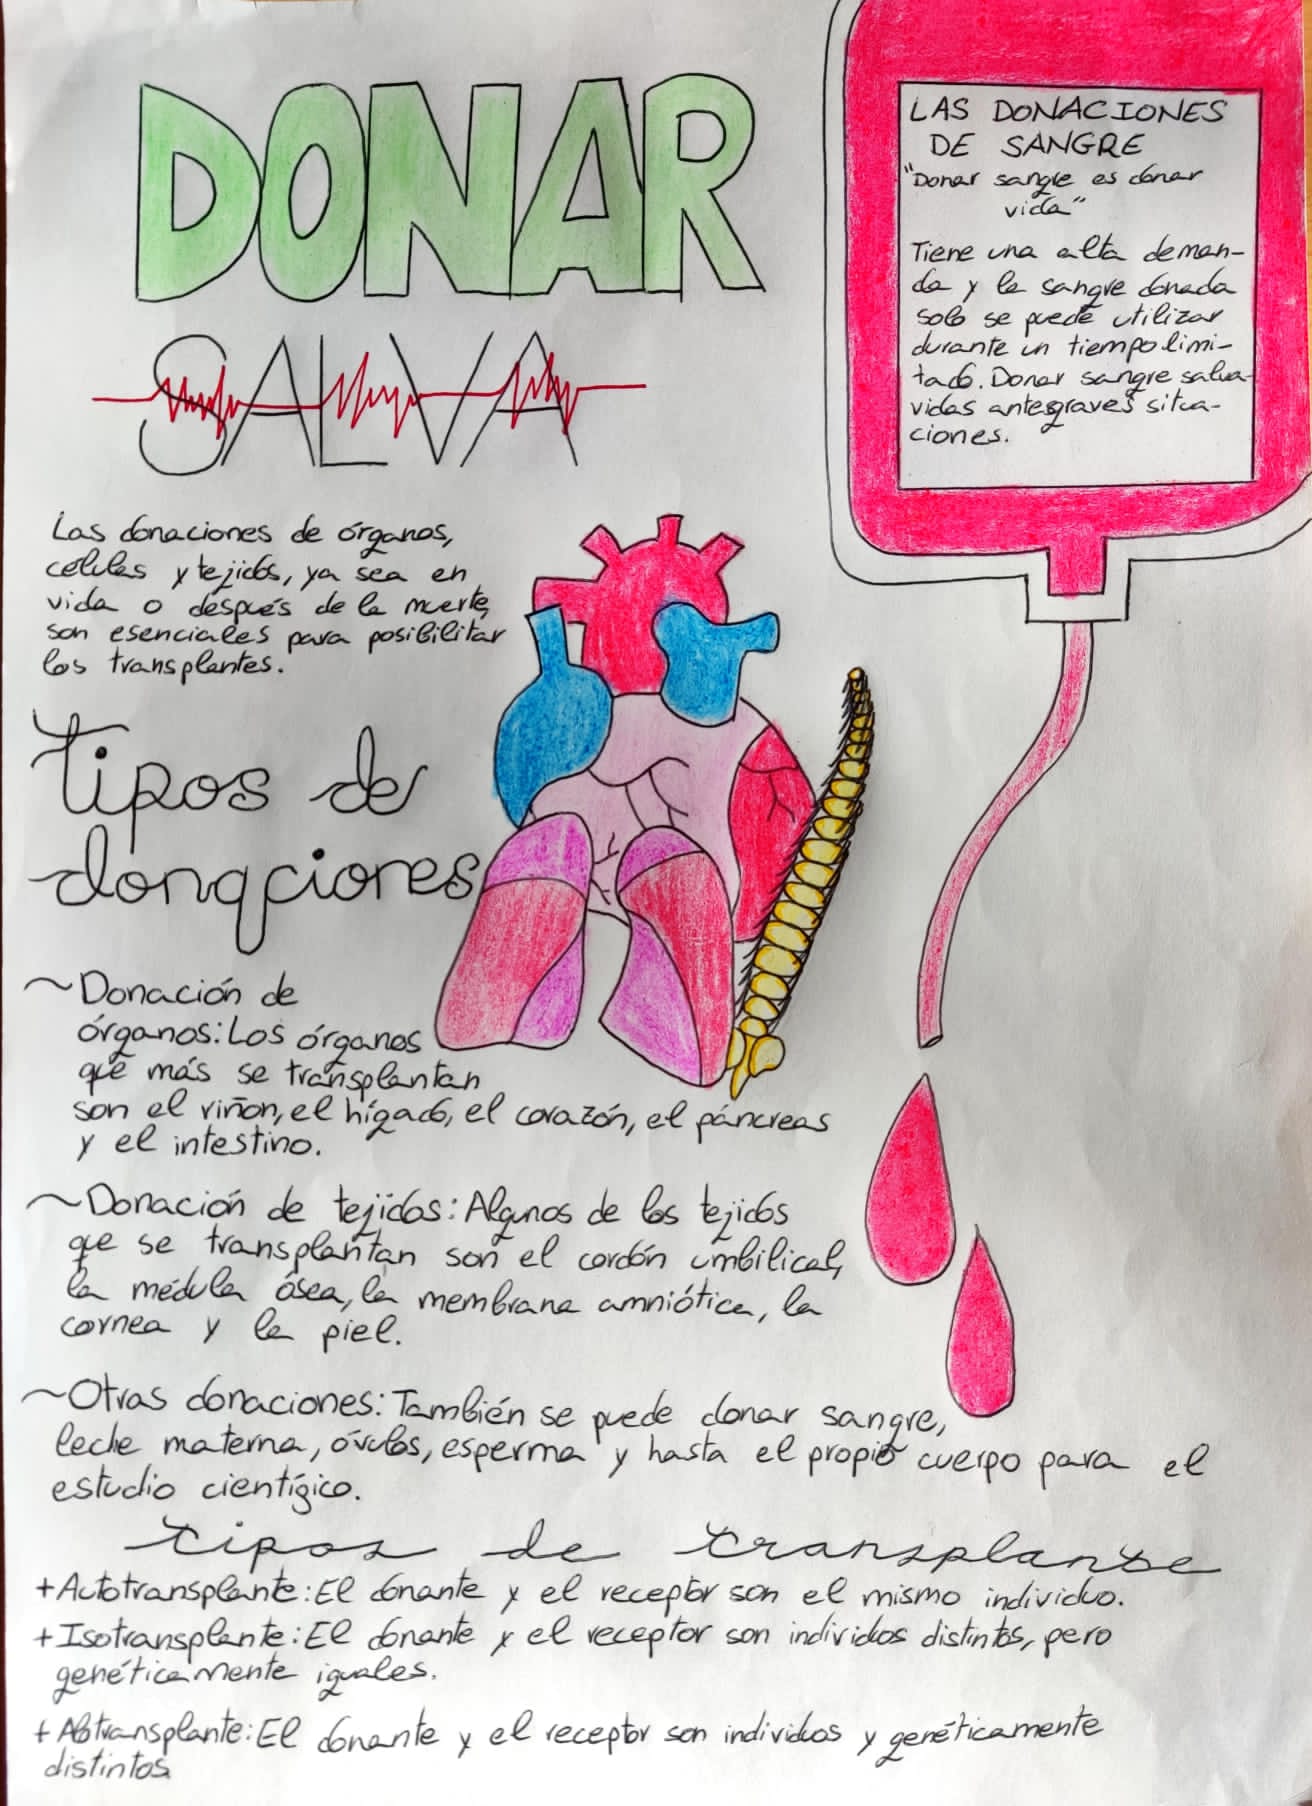 DONAR
SALVA
LAS DONACIONES
DE SANGRE
"Donar sangre es donar
vida"
Tiene una alta deman-
da y la sangre donada
solo se puede utilizar
durante un tiempo limi-
tado. Donar sangre salva
vidas antes graves situa-
ciones.
Las donaciones de órganos,
células y tejidos, ya sea en
vida o después de la muerte,
son esenciales para posibilitar
los transplantes.
tipos de
donaciones
~Donación de
órganos: Los órganos
que más se transplantan
son el riñon, el hígado, el corazón, el páncreas
y el intestino.
~Donación de tejidos: Algunos de los tejidos
que se transplantan son el cordón umbilical,
la médula ósea, la membrana amniótica, la
cornea y la piel.
~Otras donaciones: También se puede donar sangre,
leche materna, óvulos, esperma y hasta el propio cuerpo para el
estudio científico.
tipos de transplante
+Autotransplante: El donante y el receptor son el mismo individuo.
+Isotransplante: El donante y el receptor son individos distintos, pero
genéticamente iguales.
+Alotransplante: El donante y el receptor son individuos y genéticamente
distintos